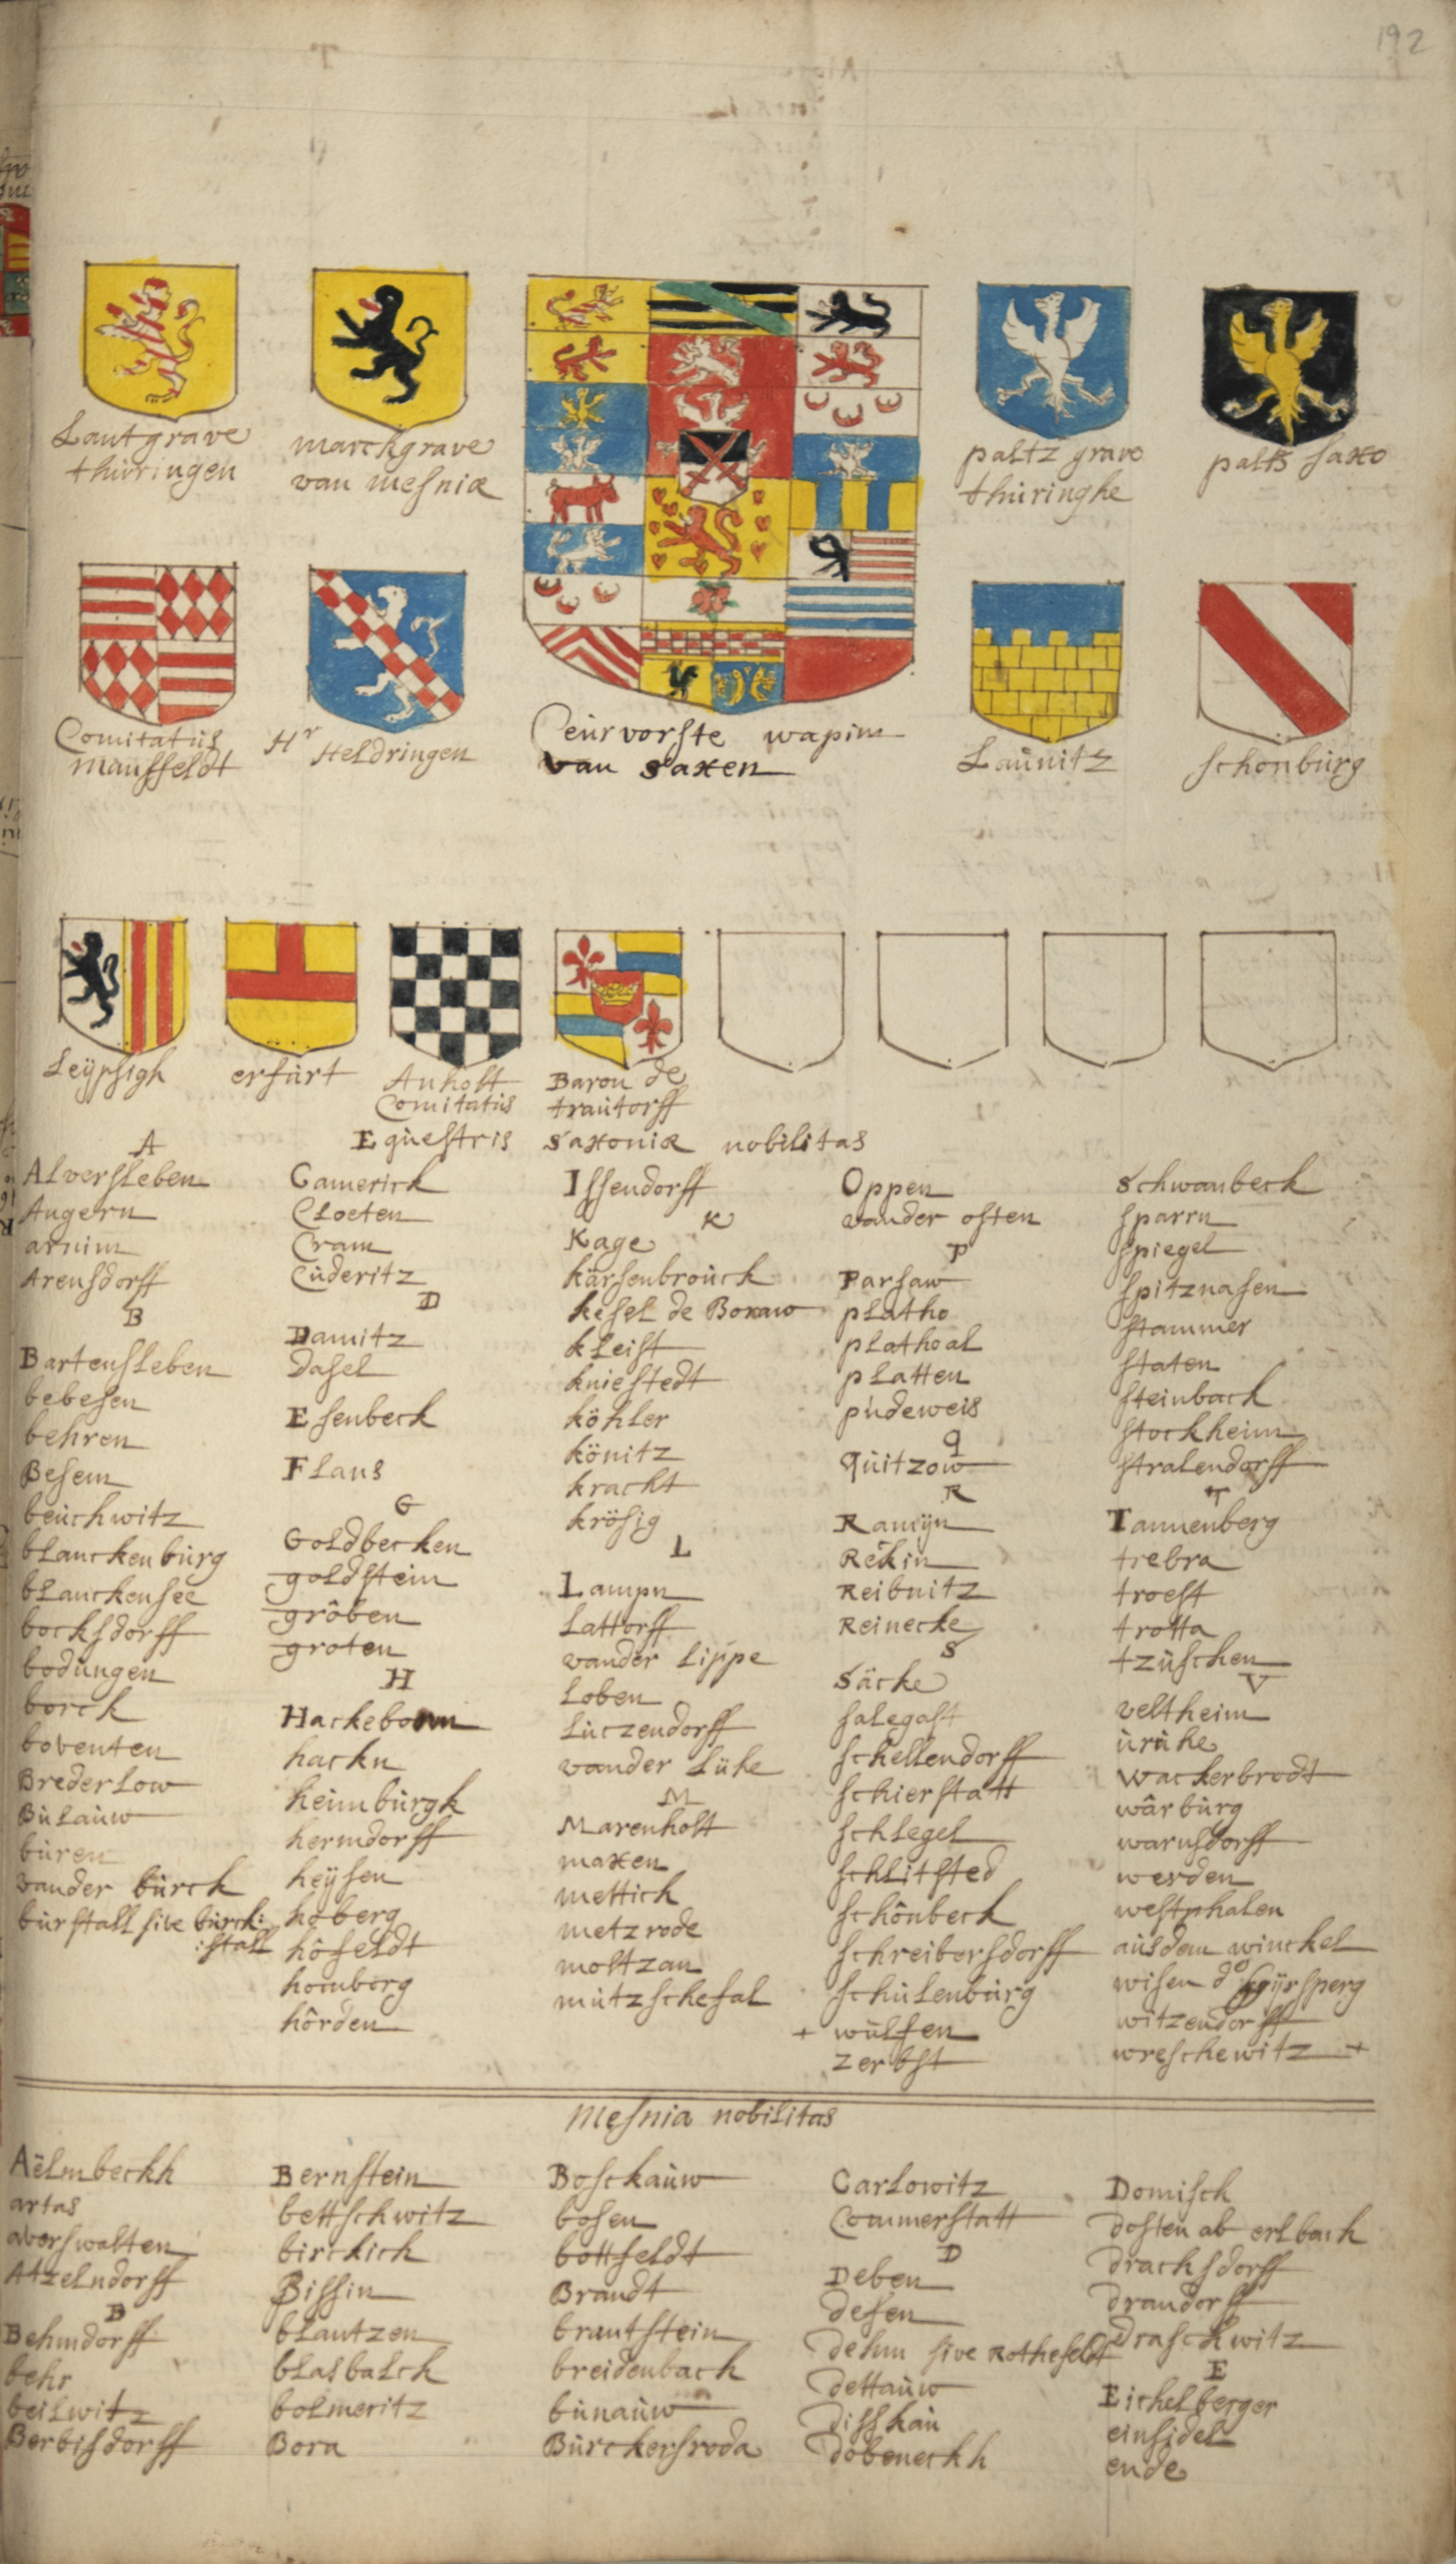 192
Lantgrave
thüringen
marckgrave
van mesniæ
paltz grave
thüringhe
palts saxo
Comitatüs
mansfeldt
Hr Heldringen
Ceurvorste wapim
van saxen
Laünitz
schonbürg
Leÿpsigh
erfürt
Anholt
Comitatüs
Baron de
traütorff
Eqüestris saxoniæ nobilitas
A
Alversleben
Angern
arnim
Arensdorff
B
Bartensleben
bebesen
behren
Besem
beüchwitz
blanckenbürg
blanckensee
bocksdorff
bodüngen
borck
boventen
Brederlow
Bülaüw
büren
vander bürck
bürstall sive bürck:
:stall
Camerick
Cloeten
Cram
Cüderitz
D
Damitz
dasel
Esenbeck
Flans
G
Goldbecken
goldstein
gröben
groten
H
Hackeborn
hackn
heimbürgk
hermdorff
heÿsen
hoberg
höfeldt
homberg
hörden
Issendorff
K
Kage
kärsenbroück
kesel de Boxaw
kleist
kniestedt
köhler
könitz
kracht
krösig
L
Lampn
Lattorff
vander Lippe
Loben
Lüczendorff
vander Lühe
M
Marenholt
maxen
mettich
metzrode
moltzan
mützschefal
Oppen
vander osten
P
Parsaw
platho
plathoal
platten
püdeweis
q
qüitzow
R
Ramÿn
Rekin
Reibnitz
Reinecke
S
Säcke
salegast
schellendorff
schierstatt
schlegel
schlitsted
schönbeck
schreibersdorff
schülenbürg
+ wülfen
zerbst
schwanbeck
sparrn
spiegel
spitznasen
stammer
staten
steinback
stockheim
stralendorff
T
Tannenberg
trebra
troest
trotta
tzüschen
V
veltheim
ürühe
wackerbrodt
wârbürg
warnsdorff
werden
westphalen
aüsdem winckel
witzendorff
wreschewitz +
Mesnia nobilitas
Aëlmbeckh
artas
averswalten
Atzelndorff
B
Behmdorff
behr
beilwitz
Berbisdorff
Bernstein
bettschwitz
birckich
Bissin
blantzen
blasbalch
bolmeritz
Bora
Boschaüw
bosen
böttfeldt
Brandt
brantstein
breidenbach
bünaüw
Bürckersroda
Carlowitz
Commerstatt
D
Deben
desen
dehm sive Rothefeldt
dettaüw
disskaü
dobeneckh
Domisch
dosten ab erlbach
drachsdorff
drandorff
draschwitz
E
Eichelberger
einsidel
ende